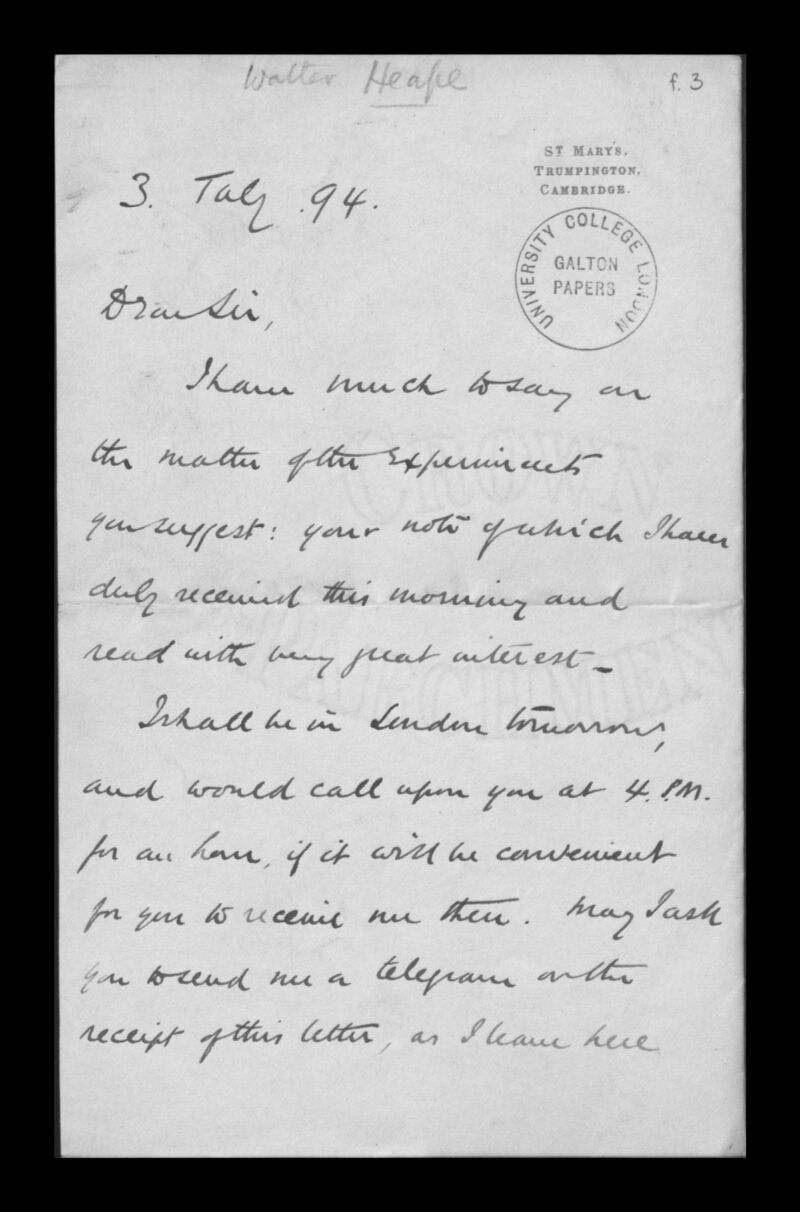 Walter Heape
f. 3
ST MARY'S.
TRUMPINGTON,
CAMBRIDGE.
3. July .94.
UNIVERSITY COLLEGE LONDON
GALTON
PAPERS
Dear Sir,
I have much to say on
the matter of the Experiments
you suggest: your note of which I have
duly received this morning and
read with very great interest_
I shall be in London tomorrow,
and would call upon you at 4. P.M.
for an hour, if it will be convenient
for you to receive me then. May I ask
you to send me a telegram on the
receipt of this letter, as I leave here